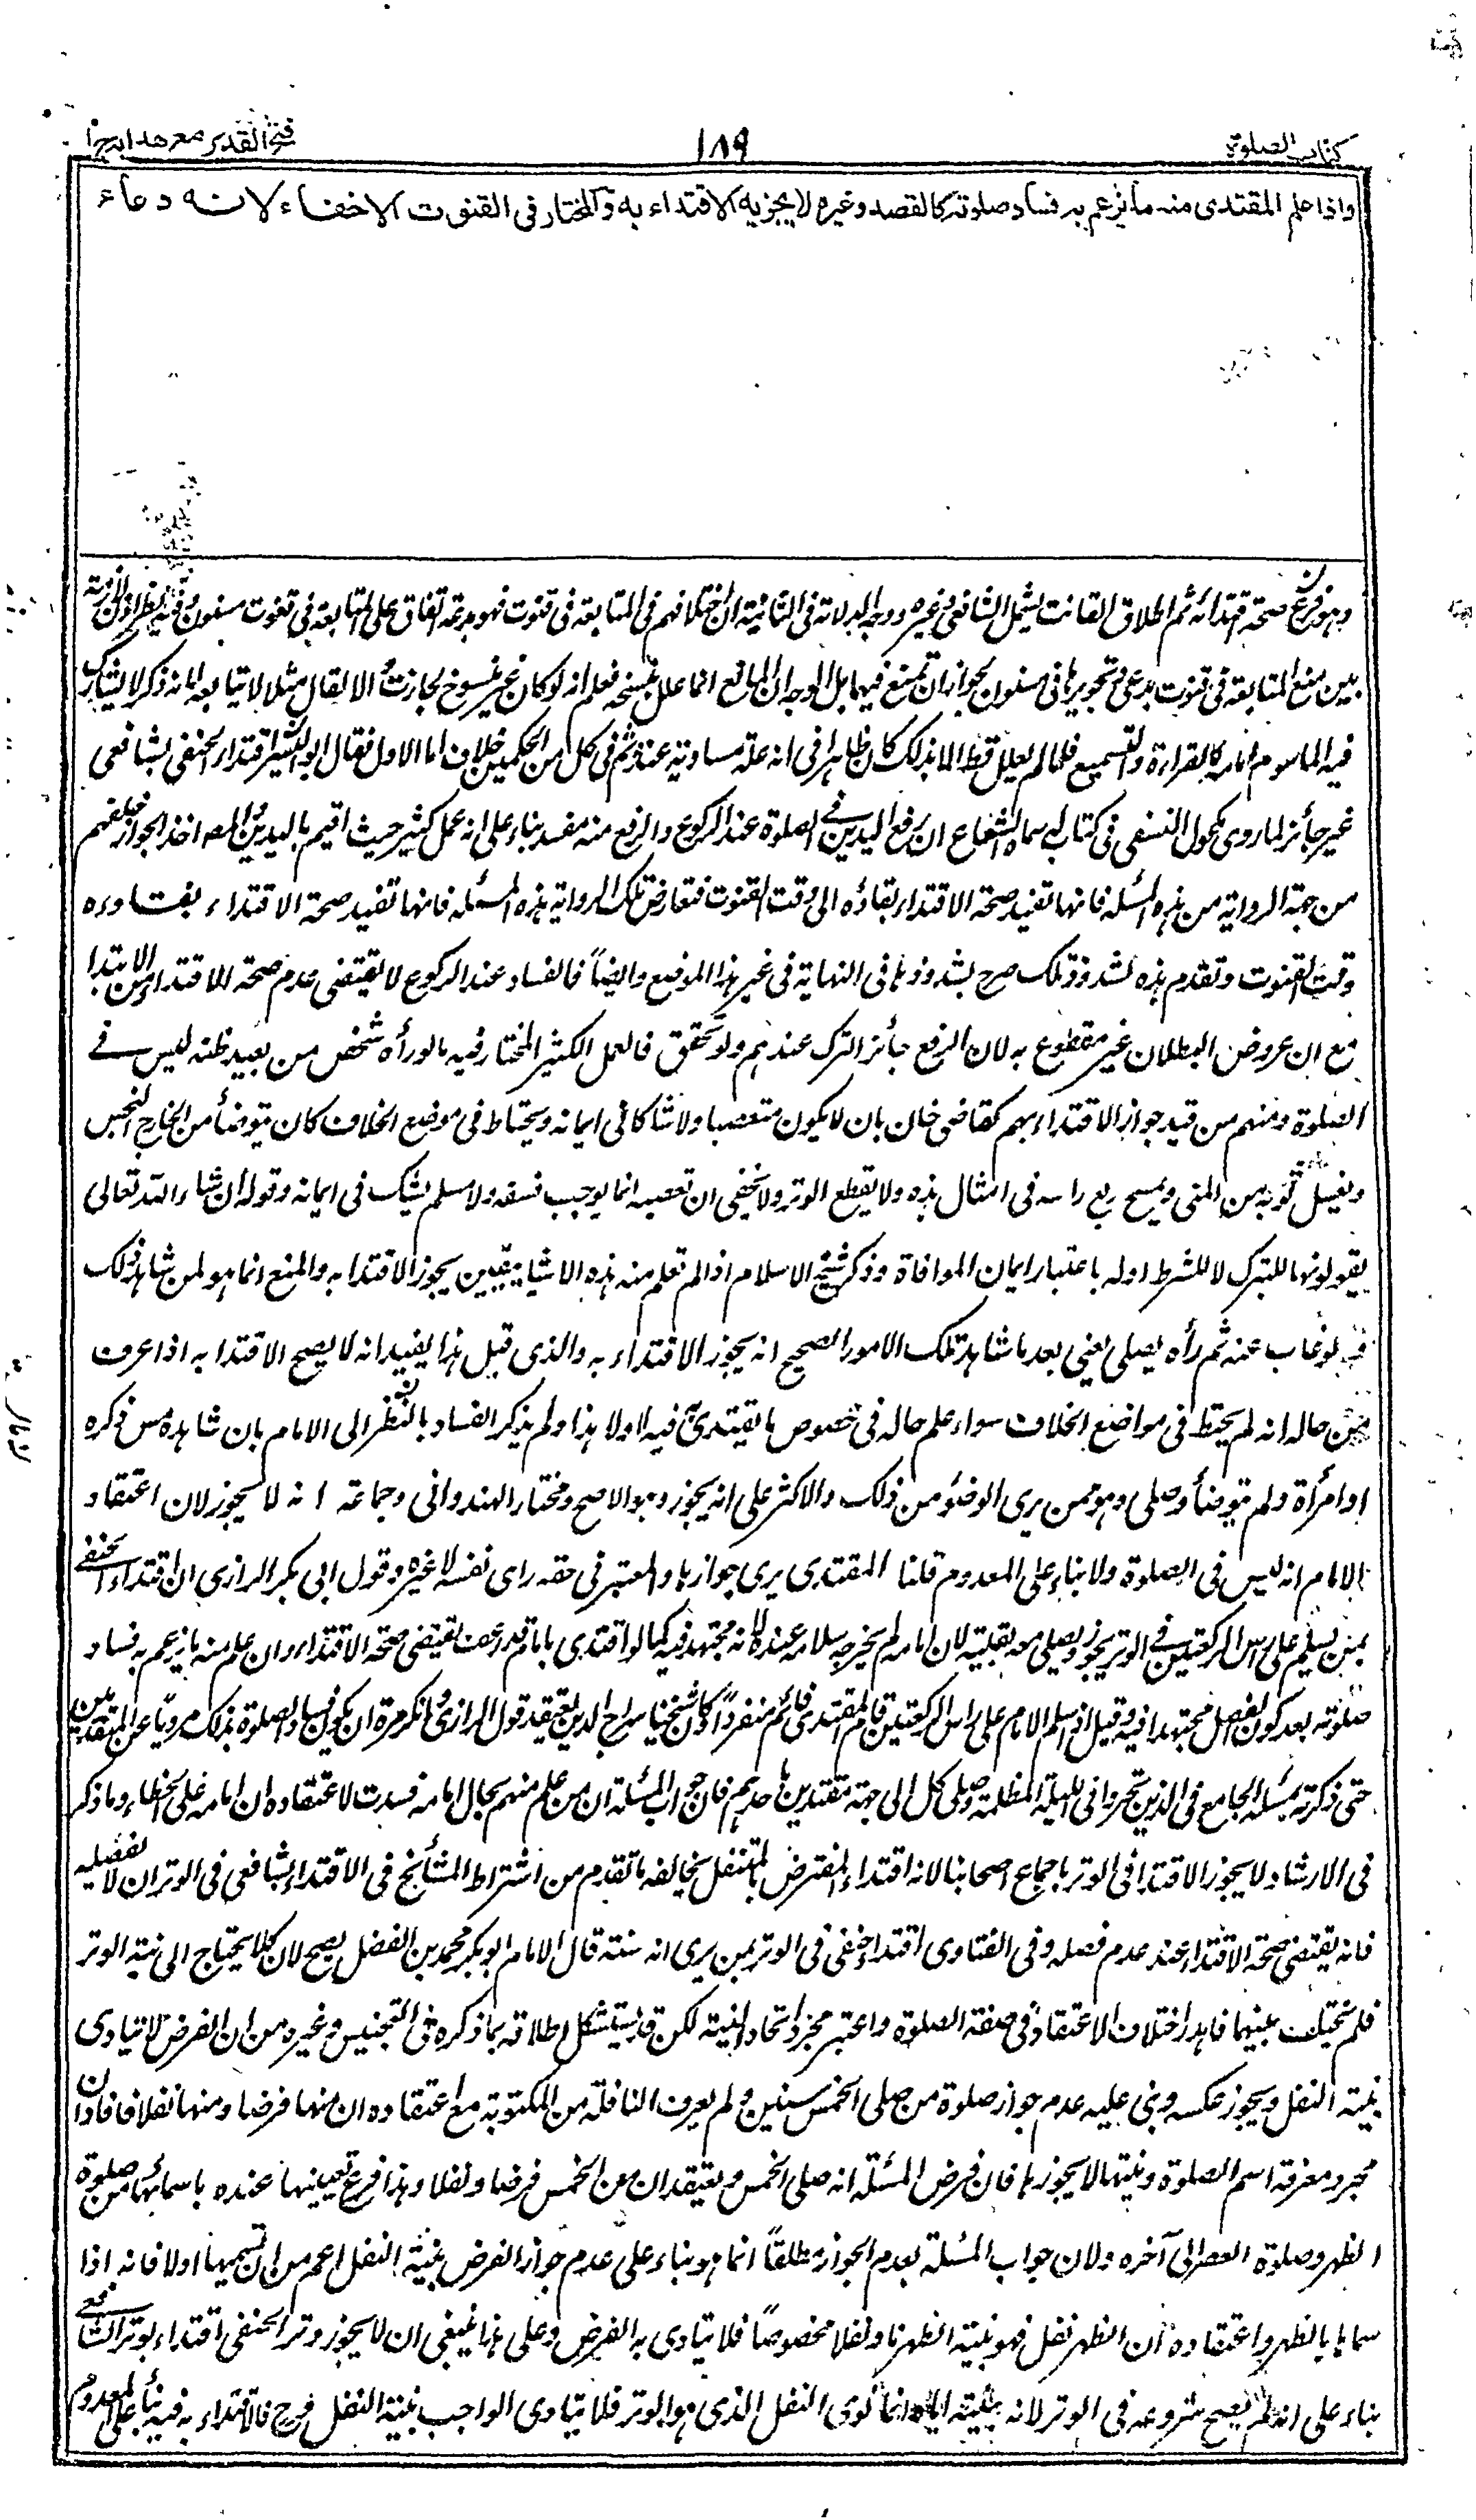 كتاب الصلوة
١٨٩
فتح القدير مع هداية ج ١
واذا علم المقتدى منه ما يزعم به فساد صلوته كالفصد وغيره لا يجزيه الاقتداء به والمختار فى القنوت الاخفاء لانه دعاء
وهو فرع صحة اقتدائه ثم اطلاق القانت يشمل الشافعى وغيره ووجه الدلالة فى الثانية ان اختلافهم فى المتابعة فى قنوت فهو بدعة اتفاق على المتابعة فى قنوت مسنون وفيه نظر اذ لا ملازمة
بين منع المتابعة فى قنوت بدعى وتجويزها فى مسنون بجواز ان تمنع فيهما بل الوجه ان المانع انما علل بنسخه فعلم انه لو كان غير منسوخ لجازت والا لقال مثلا لا يتابعه لانه ذكر لا يشارك
فيه الماموم امامه كالقراءة والتسميع فلما لم يعلل قط الا بذلك كان ظاهرا فى انه علة مساوية عنده ثم فى كل من الحكمين خلاف اما الاول فقال ابو اليسر اقتداء الحنفى بشافعى
غير جائز لما روى مكحول النسفى فى كتاب له سماه الشعاع ان رفع اليدين فى الصلوة عند الركوع والرفع منه مفسد بناء على انه عمل كثير حيث اقيم باليدين والمصـ اخذ الجواز خلفهم
من جهة الرواية من هذه المسئلة فانها تفيد صحة الاقتداء وبقاؤه الى وقت القنوت فتعارض تلك الرواية هذه المسئلة فانها تفيد صحة الاقتداء بقاؤه
وقت القنوت وتقدم هذه لشذوذ تلك صرح بشذوذها فى النهاية فى غير هذا الموضع وايضاً فالفساد عند الركوع لا يقتضى عدم صحة الاقتداء من الابتدا
مع ان عروض البطلان غير مقطوع به لان الرفع جائز الترك عندهم ولو تحقق فالعمل الكثير المختار فيه ما لو رأه شخص من بعيد ظنه ليس فى
الصلوة ومنهم من قيد جواز الاقتداء بهم كقاضى خان بان لا يكون متعصبا ولا شاكا فى ايمانه ويحتاط فى موضع الخلاف كان يتوضأ من الخارج النجس
ويغسل ثوبه من المنى ويمسح ربع راسه فى امثال هذه ولا يقطع الوتر ولا يخفى ان تعصبه انما يوجب فسقه ولا مسلم يشك فى ايمانه وقوله ان شاء الله تعالى
يقولونها للتبرك لا للشرط اوله باعتبار ايمان الموافاة وذكر شيخ الاسلام اذا لم تعلم منه هذه الاشياء بيقين يجوز الاقتدا به والمنع انما هو لمن شاهد ذلك
فيه لو غاب عنه ثم رأه يصلى يعنى بعد ما شاهد تلك الامور الصحيح انه يجوز الاقتداء به والذى قبل هذا يفيد انه لا يصح الاقتدا به اذا عرف
من حاله انه لم يحتط فى مواضع الخلاف سواء علم حاله فى خصوص ما يقتدى فيه اولا هذا ولم يذكر الفساد بالنظر الى الامام بان شاهده مس ذكره
او امرأة ولم يتوضأ وصلى وهو ممن يرى الوضؤ من ذلك والاكثر على انه يجوز وهو الاصح ومختار الهندوانى وجماعة انه لا يجوز لان اعتقاد
الامام انه ليس فى الصلوة ولا بناء على المعدوم قلنا المقتدى يرى جوازها والمعتبر فى حقه راى نفسه لا غيره وقول ابى بكر الرازى ان اقتداء الحنفى
بمن يسلم على راس الركعتين فى الوتر يجوز ويصلى معه بقيته لان امامه لم يخرجه سلامه عنده لانه مجتهد فيه كما لو اقتدى بامام قد رعف يقتضى صحة الاقتداء وان علم منه ما يزعم به فساد
صلوته بعد كون الفصل مجتهدا فيه وقيل اذا سلم الامام على راس الركعتين قام المقتدى فاتم منفردا وكان شيخنا سراج الدين يعتقد قول الرازى وانكر مرة ان يكون فساد الصلوة بذلك مرويا عن المتقدمين
حتى ذكرته بمسئلة الجامع فى الذين تحروا فى الليلة المظلمة وصلى كل الى جهة مقتدين باحدهم فان جواب المسئلة ان من علم منهم بحال امامه فسدت لاعتقاده ان امامه على الخطاء وما ذكر
فى الارشاد لا يجوز الاقتدا فى الوتر باجماع اصحابنا لانه اقتداء المفترض بالمتنفل يخالفه ما تقدم من اشتراط المشائخ فى الاقتداء بشافعى فى الوتر ان لا يفصله
فانه يقتضى صحة الاقتداء عند عدم فصله وفى الفتاوى اقتداء حنفى فى الوتر بمن يرى انه سنة قال الامام ابو بكر محمد بن الفضل يصح لان كلا يحتاج الى نية الوتر
فلم تختلف نيتهما فاهدر اختلاف الاعتقاد فى صفة الصلوة واعتبر مجرد اتحاد النية لكن قد يستشكل اطلاقه بما ذكره فى التجنيس وغيره من ان الفرض لا يتادى
بنية النفل ويجوز عكسه وبنى عليه عدم جواز صلوة من صلى الخمس سنين ولم يعرف النافلة من المكتوبة مع اعتقاده ان منها فرضا ومنها نفلا فافاد ان
مجرد معرفة اسم الصلوة ونيتها لا يجوزها فان فرض المسئلة انه صلى الخمس ويعتقد ان من الخمس فرضا ونفلا وهذا فرع تعيينها عنده باسمائها من صلوة
الظهر وصلوة العصر الى آخره ولان جواب المسئلة بعدم الجواز مطلقاً انما هو بناء على عدم جواز الفرض بنية النفل اعم من ان تسميها اولا فانه اذا
سماها بالظهر واعتقاده ان الظهر نفل فهو بنية الظهر ناو نفلا مخصوصاً فلا يتادى به الفرض وعلى هذا ينبغى ان لا يجوز وتر الحنفى اقتداء بوتر الشافعى
بناء على انه لم يصح شروعه فى الوتر لانه بنيته اياه انما نوى النفل الذى هو الوتر فلا يتادى الواجب بنية النفل وح فالاقتداء به فيه بناء على المعدوم